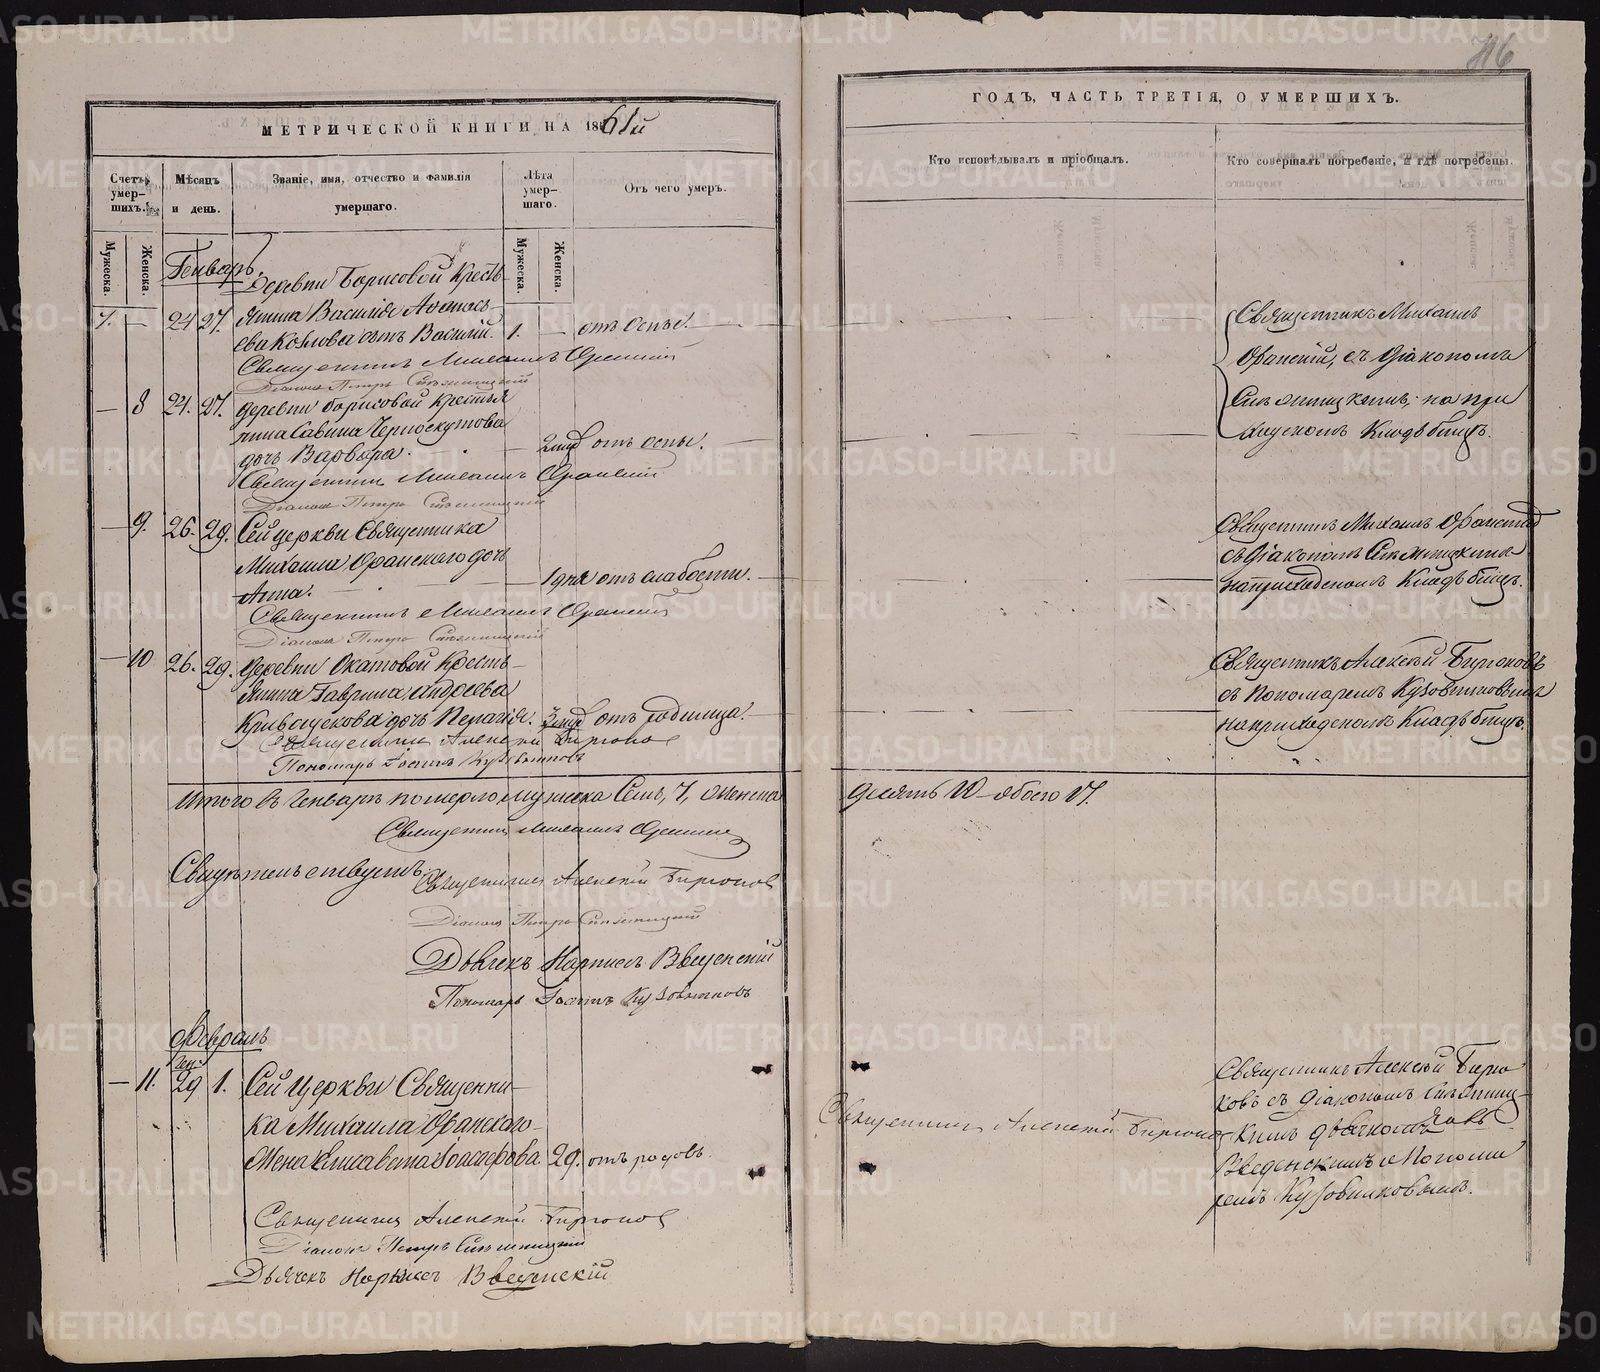 МЕТРИЧЕСКОЙ КНИГИ НА 1861й
Счетъ умер-шихъ.
Мѣсяцъ и день.
Званіе, имя, отчество и фамилія умершаго.
Лѣта умер-шаго.
Отъ чего умеръ.
Мужеска.
Женска.
Мужеска.
Женска.
Генварь.
Деревни Борисовой Кресть-
7. — 24 27. янина Василія Аѳанась-
ева Козлова сынъ Василій. 1. — отъ оспы.
Священникъ Михаилъ Оранскій
Діаконъ Петръ
— 8 24. 27. Деревни Борисовой крестья
нина Савина Черноскутова
дочь Варвара. 2 нед отъ оспы.
Священникъ Михаилъ Оранскій
Діаконъ Петръ
— 9. 26. 29. Сей церкви Священника
Михаила Оранскаго дочь
Анна. 1 дня отъ слабости.
Священникъ Михаилъ Оранскій
Діаконъ Петръ
— 10 26. 29. Деревни Окатовой Кресть-
янина Гаврила Андреева
Кривощекова дочь Пелагія. 3 нед отъ родимца.
Священникъ Алексѣй Бирюковъ
Пономарь Кузовниковъ
Итого въ Генварѣ померло мужеска Семь, 7, а женска
Священникъ Михаилъ Оранскій
Свидѣтельствуютъ:
Священникъ Алексѣй Бирюковъ
Діаконъ Петръ
Дьячекъ Наркисъ Введенскій
Пономарь Кузовниковъ
Февраль
Ген
— 11. 29 1. Сей Церкви Священни-
ка Михаила Оранскаго
жена Елисавета Іоасафова. 29. отъ родовъ.
Священникъ Алексѣй Бирюковъ
Діаконъ Петръ
Дьячекъ Наркисъ Введенскій
ГОДЪ, ЧАСТЬ ТРЕТІЯ, О УМЕРШИХЪ.
Кто исповѣдывалъ и пріобщалъ.
Кто совершалъ погребеніе, и гдѣ погребены.
Священникъ Михаилъ
Оранскій, съ Діакономъ
на при
ходскомъ Кладбищѣ.
Священникъ Михаилъ Оранскій
съ Діакономъ
на приходскомъ Кладбищѣ.
Священникъ Алексѣй Бирюковъ
съ Пономаремъ Кузовниковымъ
на приходскомъ Кладбищѣ.
Десять 10 обоего 17.
Священникъ Алексѣй Бирюковъ
Священникъ Алексѣй Бирю
ковъ съ Діакономъ
кимъ дьячкомъ
Введенскимъ и Понома
ремъ Кузовниковымъ.
METRIKI.GASO-URAL.RU